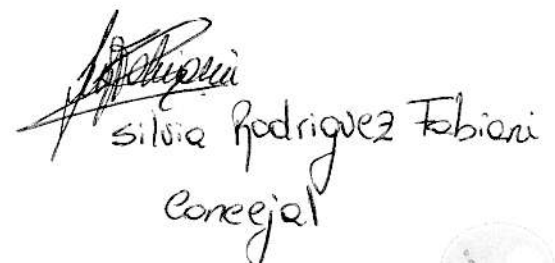 Silvia Rodriguez Fabiani
Concejal